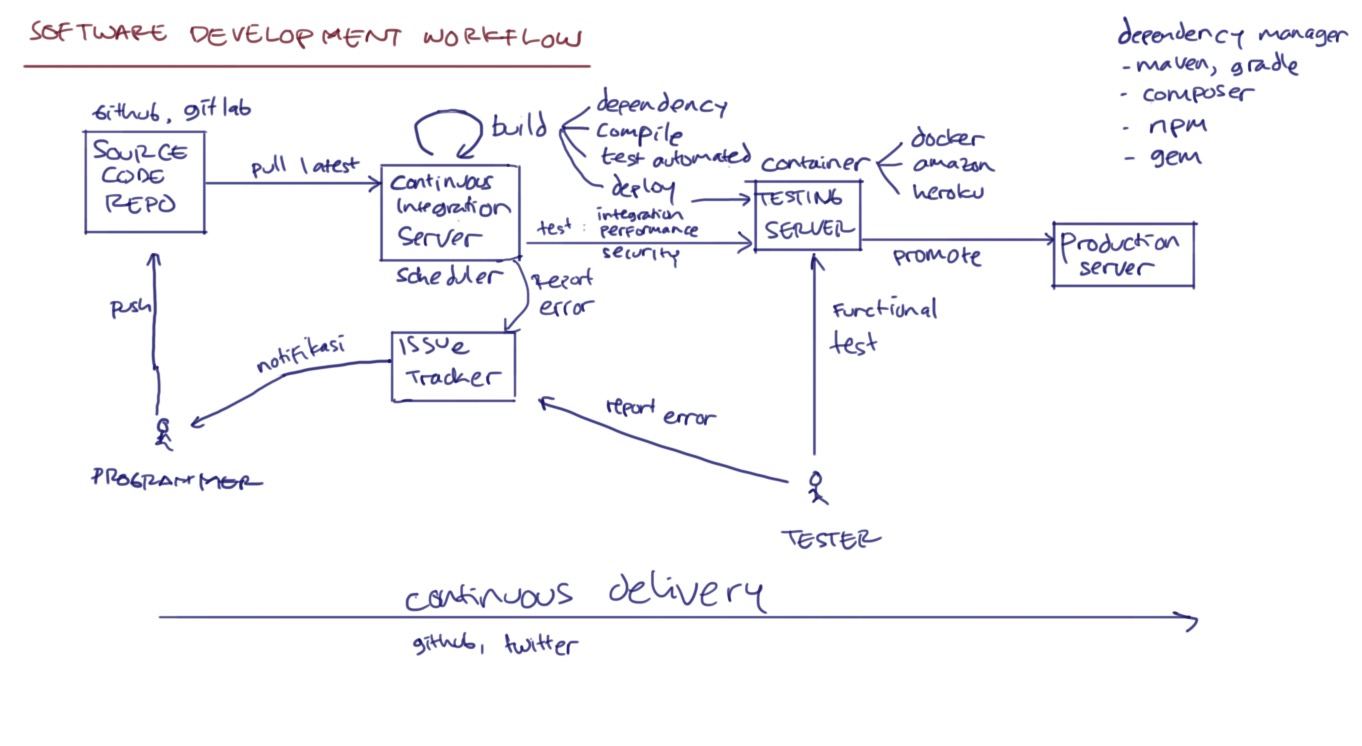 SOFTWARE DEVELOPMENT WORKFLOW
dependency manager
- maven, gradle
- composer
- npm
- gem
Github, gitlab
SOURCE
CODE
REPO
pull latest
build
dependency
compile
test automated
deploy
Continuous
Integration
Server
scheduler
test :
integration
performance
security
container
docker
amazon
heroku
TESTING
SERVER
promote
Production
server
push
report
error
notifikasi
ISSUE
Tracker
report error
Functional
test
PROGRAMMER
TESTER
continuous delivery
github, twitter